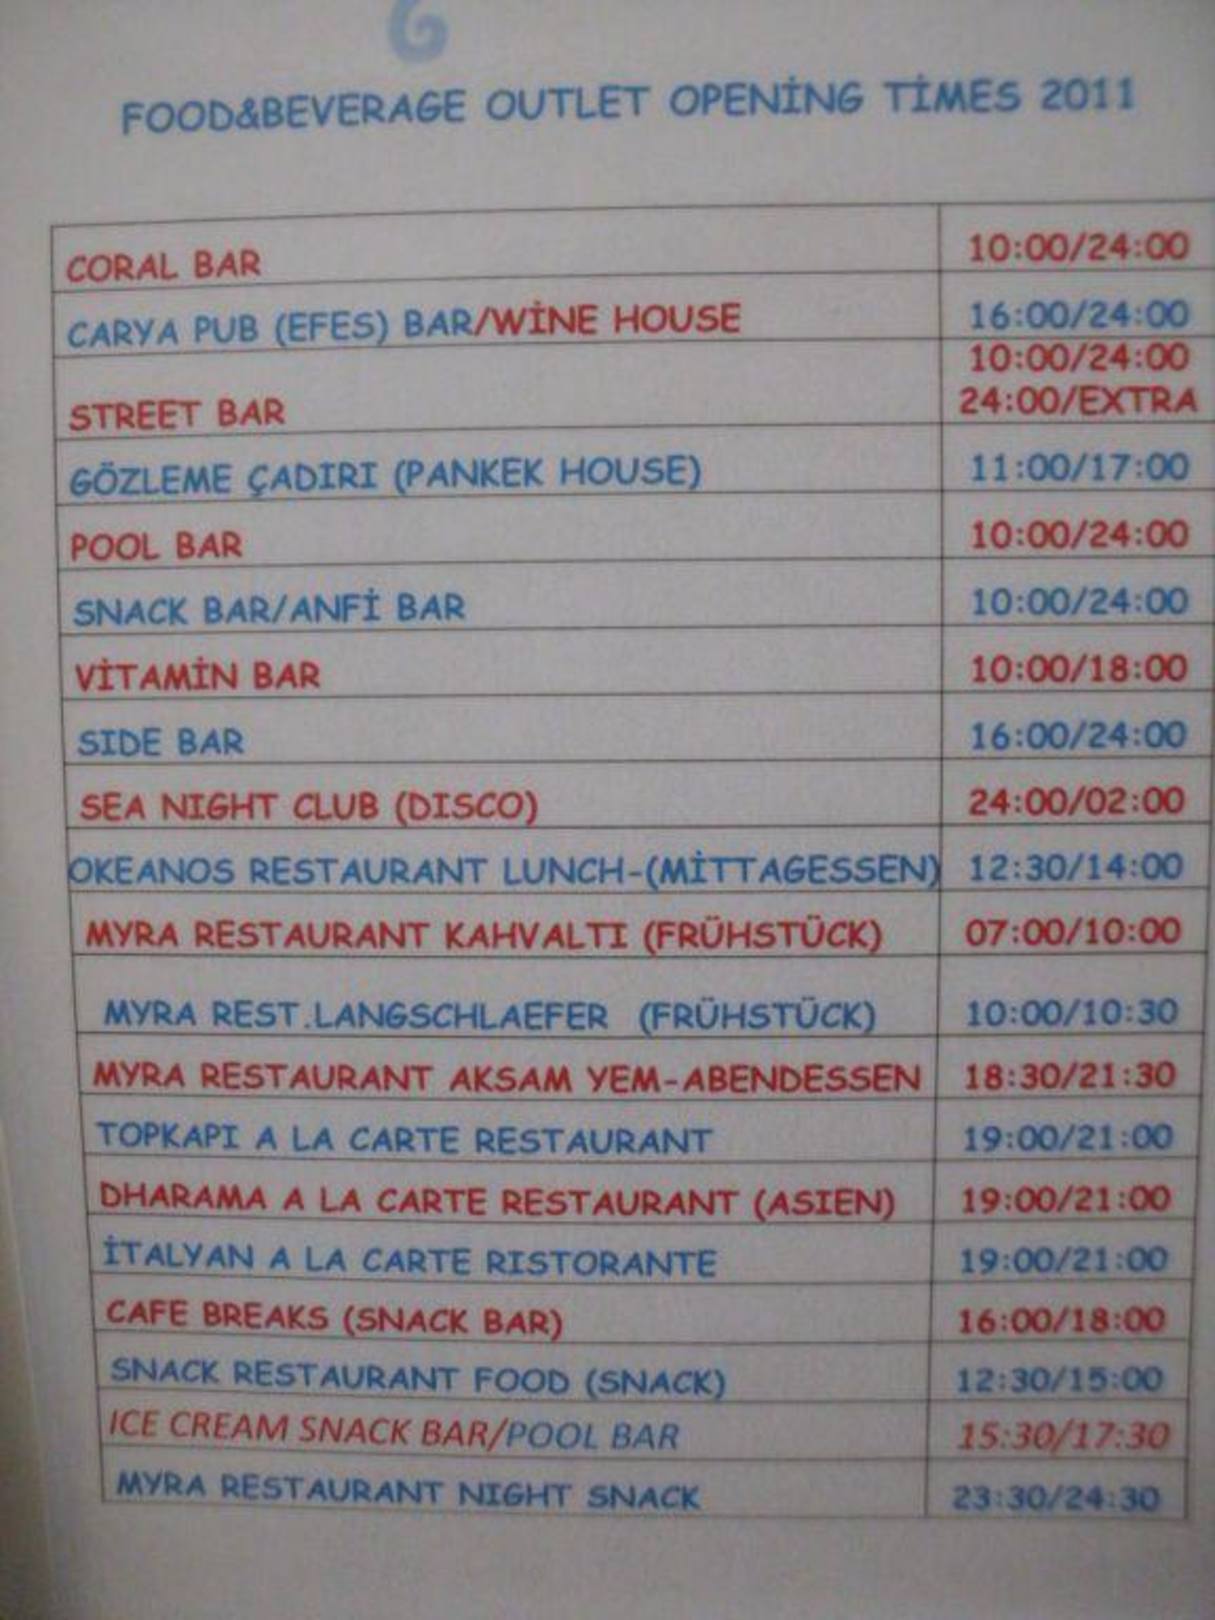 FOOD&BEVERAGE OUTLET OPENİNG TİMES 2011
CORAL BAR 10:00/24:00
CARYA PUB (EFES) BAR/WİNE HOUSE 16:00/24:00
10:00/24:00
STREET BAR 24:00/EXTRA
GÖZLEME ÇADIRI (PANKEK HOUSE) 11:00/17:00
POOL BAR 10:00/24:00
SNACK BAR/ANFİ BAR 10:00/24:00
VİTAMİN BAR 10:00/18:00
SIDE BAR 16:00/24:00
SEA NIGHT CLUB (DISCO) 24:00/02:00
OKEANOS RESTAURANT LUNCH-(MİTTAGESSEN) 12:30/14:00
MYRA RESTAURANT KAHVALTI (FRÜHSTÜCK) 07:00/10:00
MYRA REST.LANGSCHLAEFER (FRÜHSTÜCK) 10:00/10:30
MYRA RESTAURANT AKSAM YEM-ABENDESSEN 18:30/21:30
TOPKAPI A LA CARTE RESTAURANT 19:00/21:00
DHARAMA A LA CARTE RESTAURANT (ASIEN) 19:00/21:00
İTALYAN A LA CARTE RISTORANTE 19:00/21:00
CAFE BREAKS (SNACK BAR) 16:00/18:00
SNACK RESTAURANT FOOD (SNACK) 12:30/15:00
ICE CREAM SNACK BAR/POOL BAR 15:30/17:30
MYRA RESTAURANT NIGHT SNACK 23:30/24:30